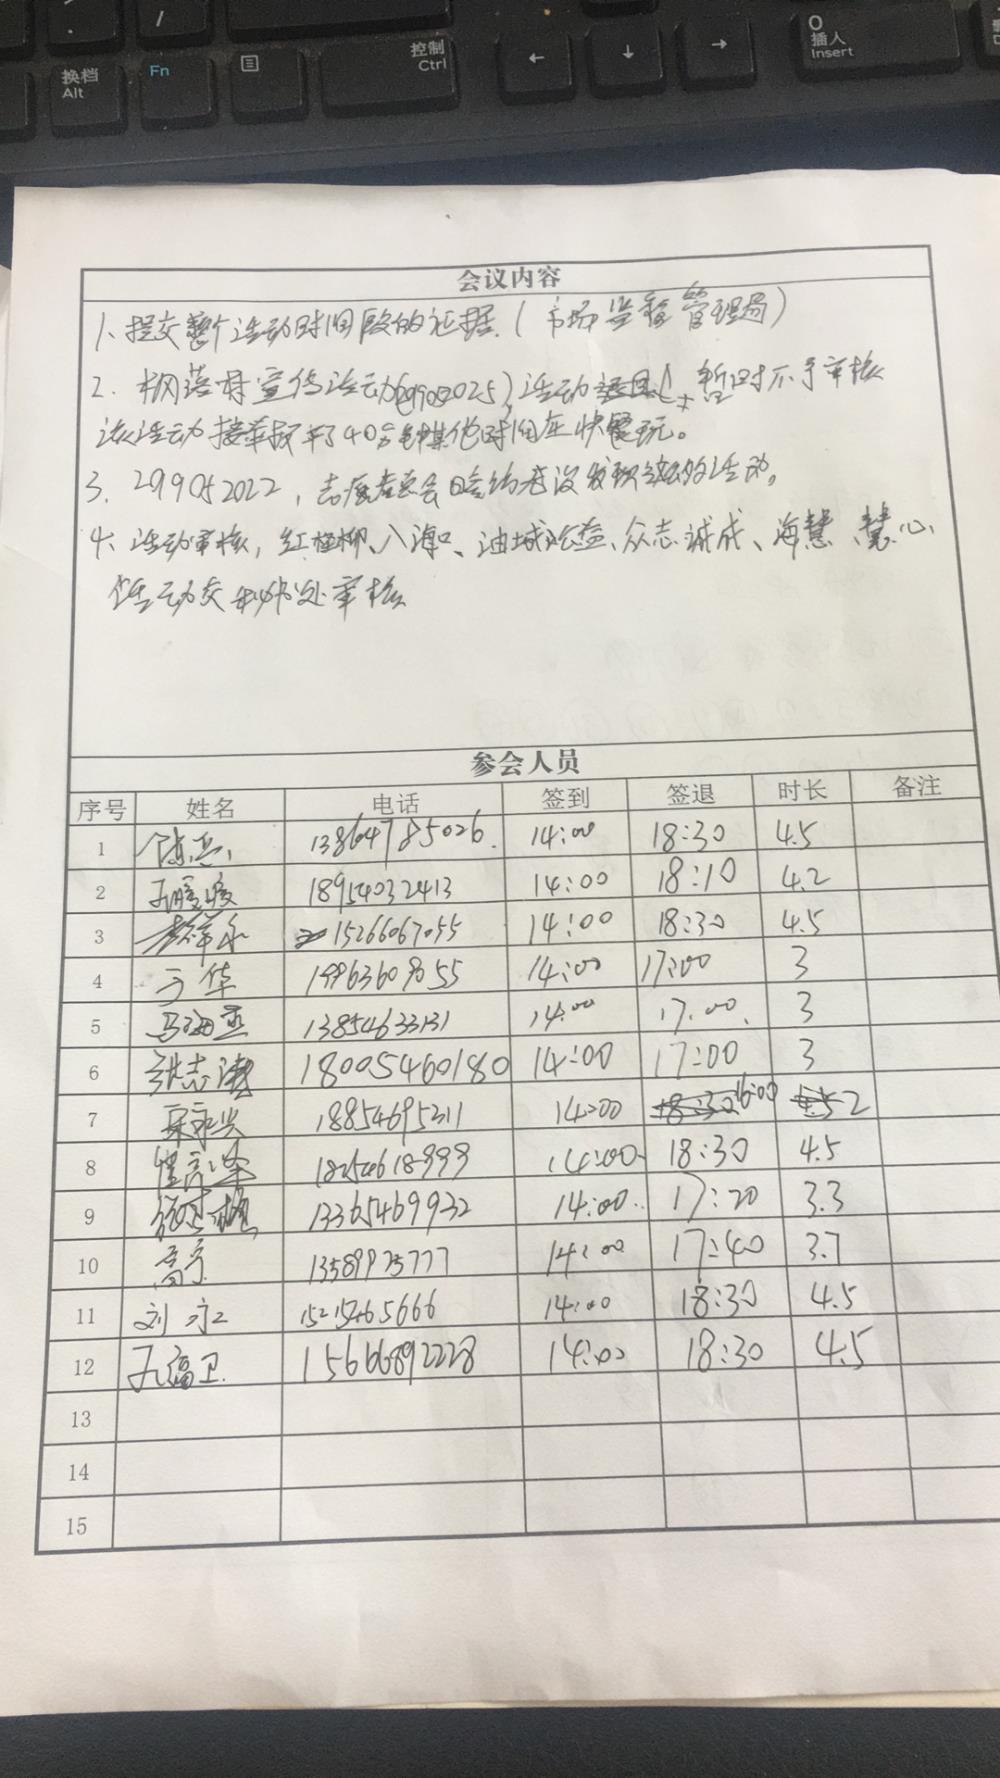 /
换档
Alt
Fn
控制
Ctrl
←
↓
→
0
插入
Insert
会议内容
1、提交整个活动时间段的证据.(市场监督管理局)
2. 宣传活动 活动 暂时不予审核
该活动 了40分钟其他时间在快餐玩。
3. 299052022,志愿者总会 没发现 的活动。
4、活动审核,红柽柳、入海口、油城 众志诚成、海慧、慧心
活动交 处审核
参会人员
序号 姓名 电话 签到 签退 时长 备注
1 13864785026. 14:00 18:30 4.5
2 孔暖暖 18954032413 14:00 18:10 4.2
3 15266067055 14:00 18:30 4.5
4 于华 14:00 17:00 3
5 马海燕 13854633131 14:00 17.00. 3
6 张志涛 18005460180 14:00 17:00 3
7 18854695311 14:00 16:00 2
8 18254618999 14:00 18:30 4.5
9 13365469932 14:00 17:20 3.3
10 高宁 13589975777 14:00 17:40 3.7
11 刘永红 14:00 18:30 4.5
12 孔福卫 15666892228 14:00 18:30 4.5
13
14
15